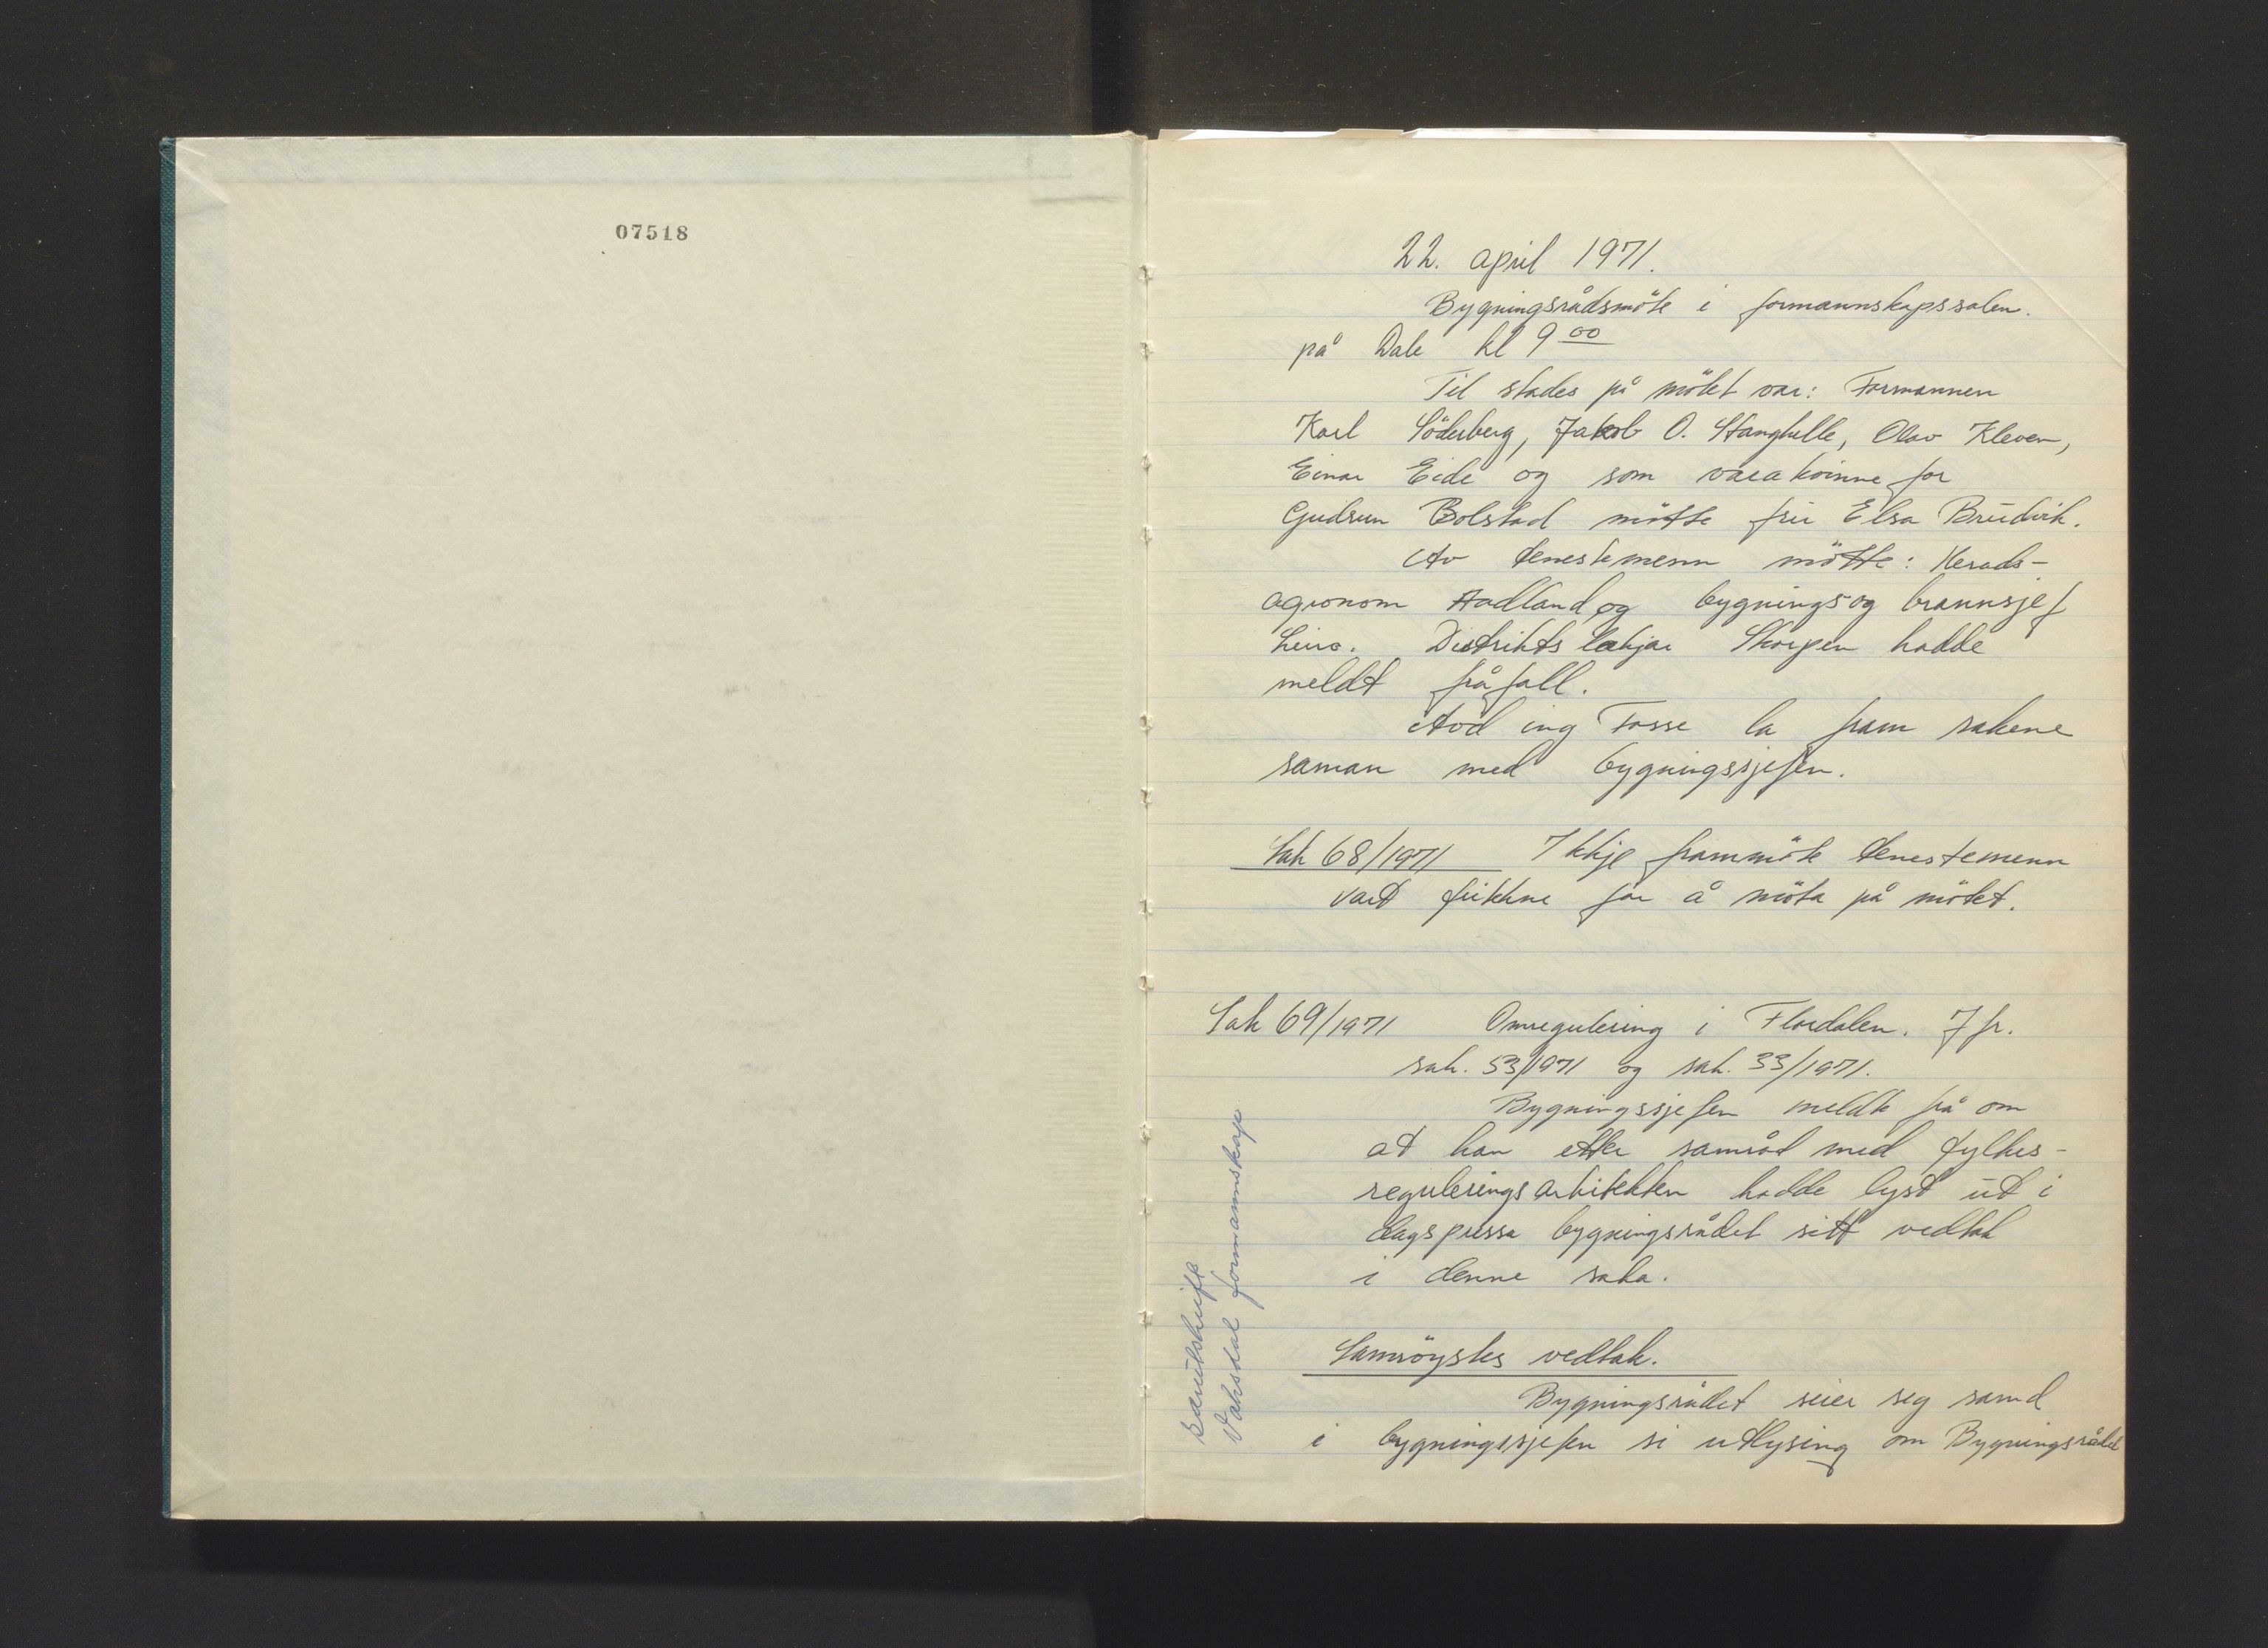 07518
22. april 1971.
Bygningsrådsmöte i formannskapssalen.
på Dale kl 9 00
Til stades på mötet var: Formannen
Karl Söderberg, Jakob O. Stanghelle, Olav Kleven,
Einar Eide og som varakvinne for
Gudrun Bolstad mötte fru Elsa Brudvik.
Av tenestemenn mötte: Herads-
agronom Hadland og bygnings og brannsjef
Leiro. Distrikts lækjar Skorpen hadde
meldt fråfall.
Avd ing Fosse la fram sakene
saman med bygningssjefen.
Sak 68/1971 Ikkje frammöte tenestemenn
vart for å möta på mötet.
Sak 69/1971 Omregulering i Flordalen. Jfr.
sak. 53/1971 og sak. 33/1971.
Bygningssjefen meldte frå om
at han etter samråd med fylkes-
reguleringsarkitekten hadde lyst ut i
dagspressa bygningsrådet sitt vedtak
i denne saka.
Samröystes vedtak.
Bygningsrådet seier seg samd
i bygningssjefen si utlysing om Bygningsrådet
Særutskrift
Vaksdal formannskap